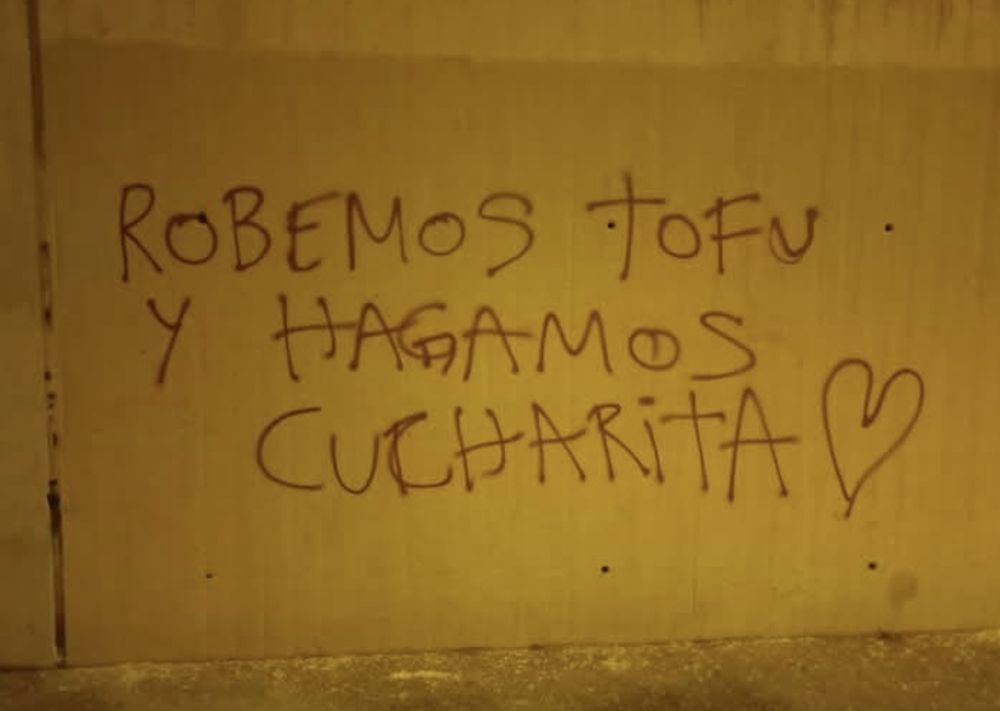 ROBEMOS TOFU
Y HAGAMOS
CUCHARiTA